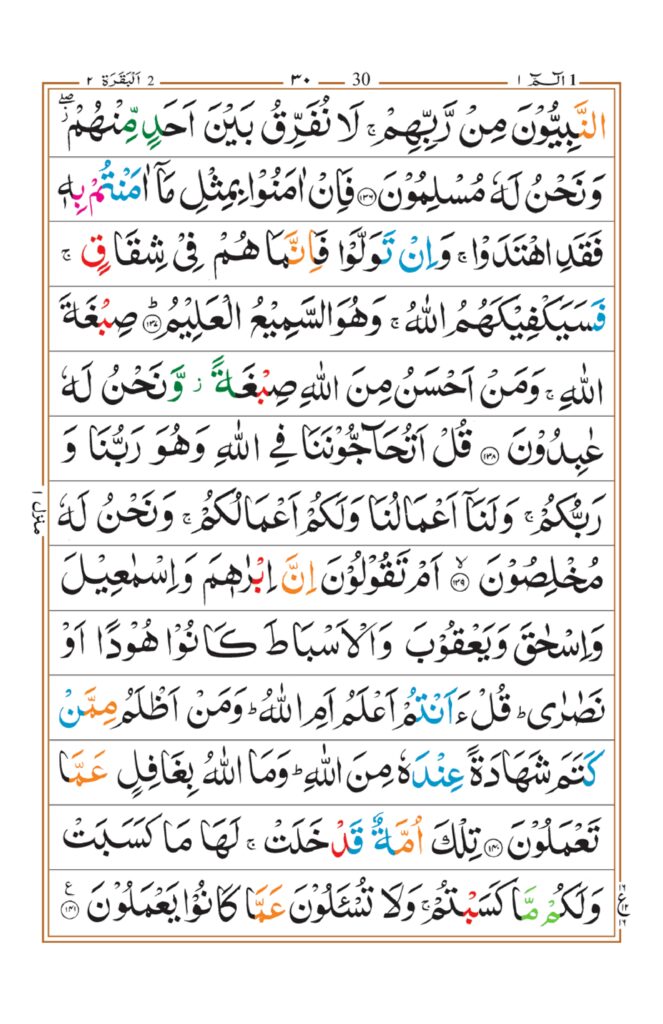 1 الٓـمّٓ ١
30 ٣٠
2 اَلْبَقَرَة ٢
النَّبِيُّوْنَ مِنْ رَّبِّهِمْ ۚ لَا نُفَرِّقُ بَيْنَ اَحَدٍ مِّنْهُمْ ۖز
وَنَحْنُ لَهٗ مُسْلِمُوْنَ ﴿۱۳۶﴾ فَاِنْ اٰمَنُوْا بِمِثْلِ مَاۤ اٰمَنْتُمْ بِهٖ
فَقَدِ اهْتَدَوْا ۚ وَاِنْ تَوَلَّوْا فَاِنَّمَا هُمْ فِيْ شِقَاقٍ ۚ
فَسَيَكْفِيْكَهُمُ اللّٰهُ ۚ وَهُوَ السَّمِيْعُ الْعَلِيْمُ ؕ ﴿۱۳۷﴾ صِبْغَةَ
اللّٰهِ ۚ وَمَنْ اَحْسَنُ مِنَ اللّٰهِ صِبْغَةً ز وَّنَحْنُ لَهٗ
عٰبِدُوْنَ ﴿۱۳۸﴾ قُلْ اَتُحَآجُّوْنَنَا فِي اللّٰهِ وَهُوَ رَبُّنَا وَ
رَبُّكُمْ ۚ وَلَنَاۤ اَعْمَالُنَا وَلَكُمْ اَعْمَالُكُمْ ۚ وَنَحْنُ لَهٗ
مُخْلِصُوْنَ ۙ ﴿۱۳۹﴾ اَمْ تَقُوْلُوْنَ اِنَّ اِبْرٰهٖمَ وَاِسْمٰعِيْلَ
وَاِسْحٰقَ وَيَعْقُوْبَ وَالْاَسْبَاطَ كَانُوْا هُوْدًا اَوْ
نَصٰرٰى ؕ قُلْ ءَاَنْتُمْ اَعْلَمُ اَمِ اللّٰهُ ؕ وَمَنْ اَظْلَمُ مِمَّنْ
كَتَمَ شَهَادَةً عِنْدَهٗ مِنَ اللّٰهِ ؕ وَمَا اللّٰهُ بِغَافِلٍ عَمَّا
تَعْمَلُوْنَ ﴿۱۴۰﴾ تِلْكَ اُمَّةٌ قَدْ خَلَتْ ۚ لَهَا مَا كَسَبَتْ
وَلَكُمْ مَّا كَسَبْتُمْ ۚ وَلَا تُسْئَلُوْنَ عَمَّا كَانُوْا يَعْمَلُوْنَ ﴿۱۴۱﴾ ع
منزل ١
١٦
ع ١٢
١٦